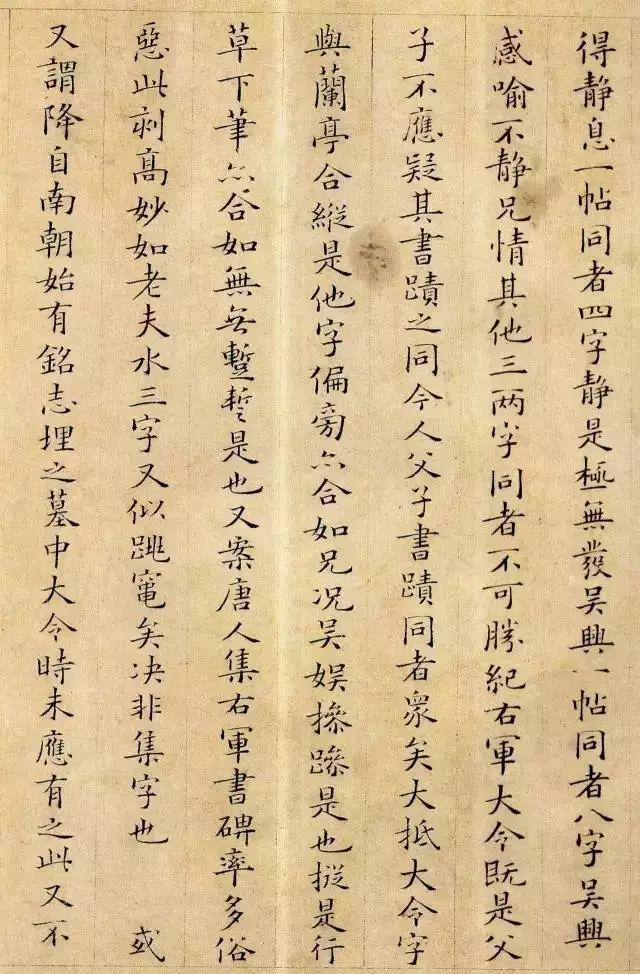 得静息一帖同者四字静是極無發吴興一帖同者八字吴興
感喻不静兄情其他三两字同者不可勝紀右軍大令既是父
子不應疑其書蹟之同今人父子書蹟同者衆矣大抵大令字
與蘭亭合縱是他字偏旁亦合如兄况吴娱摻蹤是也㨫是行
草下筆亦合如無㒇蹔誓是也又案唐人集右軍書碑率多俗
惡此刻高妙如老夫水三字又似跳竃矣决非集字也 或
又謂降自南朝始有銘志埋之墓中大令時未應有之此又不